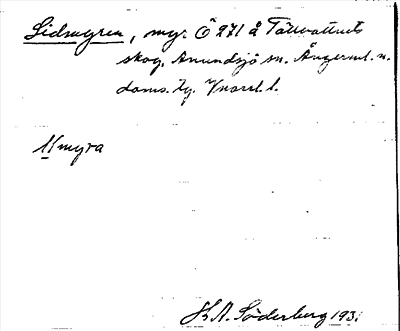 Lidmyren, myr Ö 271 å Tällvattnets
skog. Anundsjö sn. Ångerml. n.
doms. tg. Vnorrl. l.
Myra
H. A. Söderberg 193